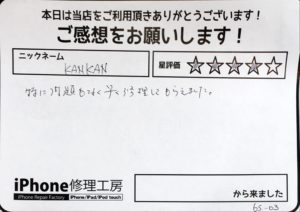 本日は当店をご利用頂きありがとうございます!
ご感想をお願いします!
ニックネーム
KANKAN
星評価
特に問題もなく早く修理してもらえました。
iPhone修理工房
iPhone Repair Factory iPhone/iPad/iPod touch
から来ました
65-03